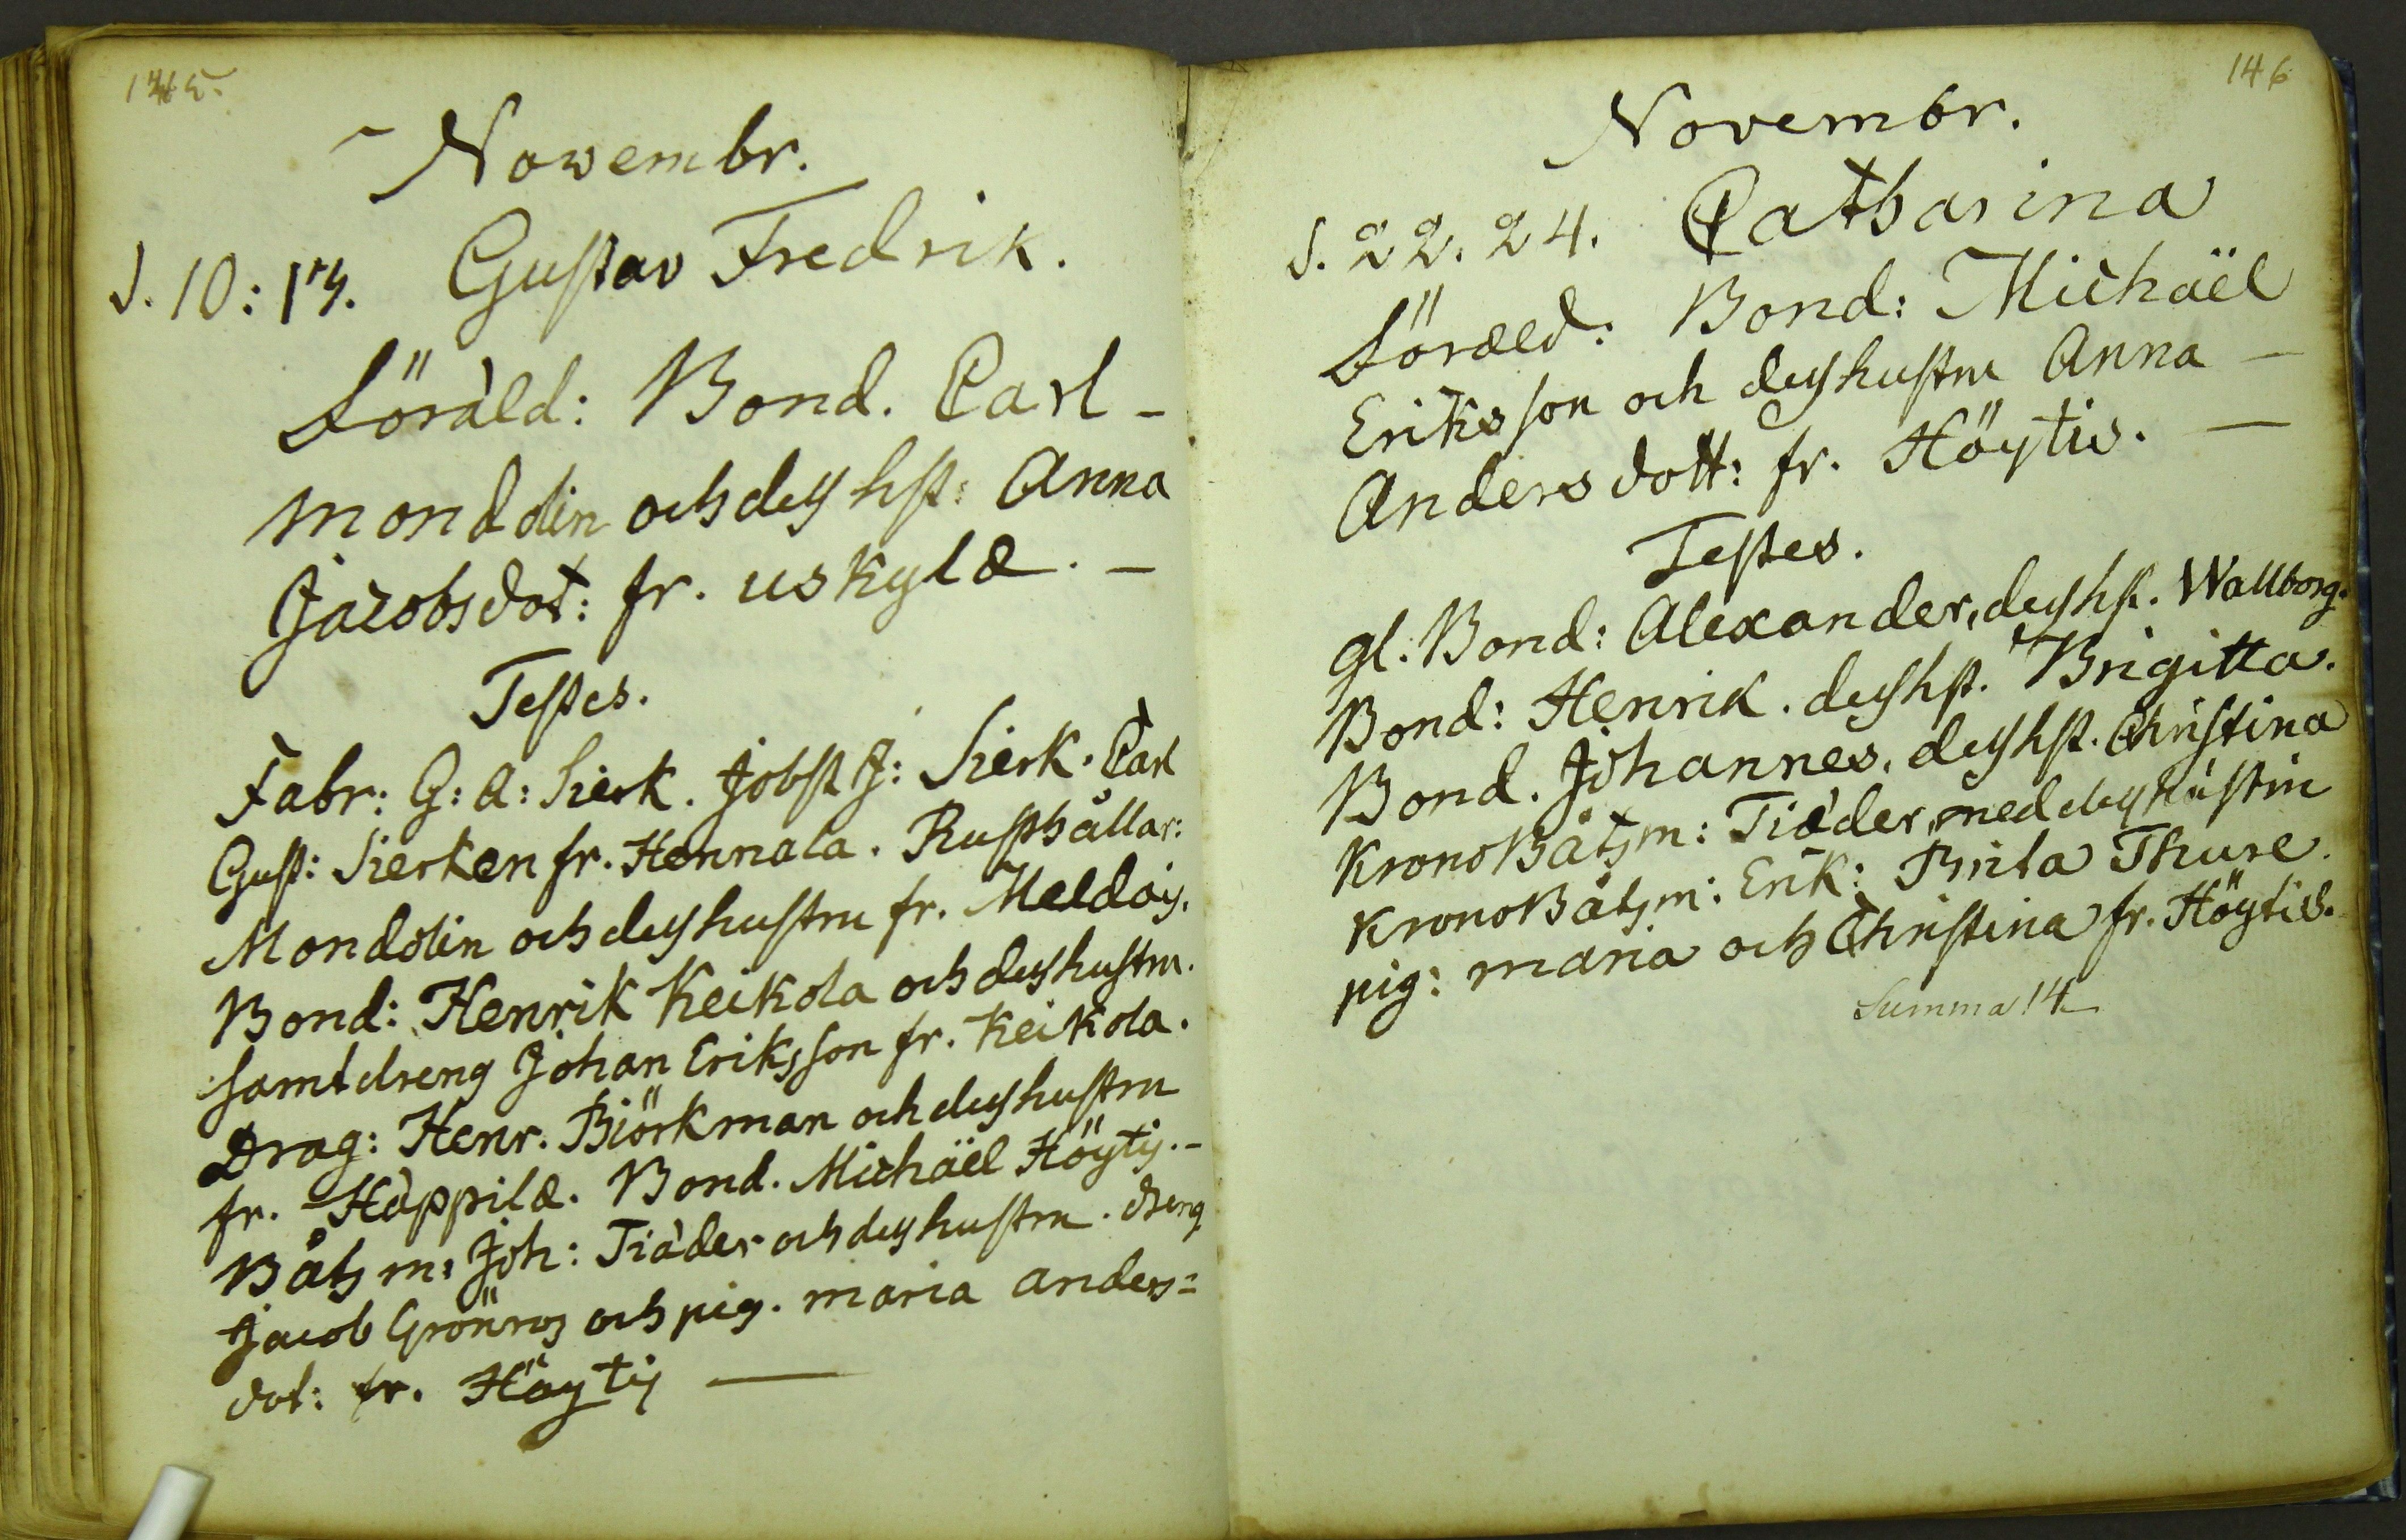 145.
Novembr.
d. 10: 17. Gustav Fredrik.
Föräld: Bond. Carl -
Monddin och dess hst: Anna
Jacobsdot: fr. uskylæ. -
Testes.
Fabr: G: A: Sierk. Jobst J: Sierk. Carl
Gust: Sierken fr. Hennala. Rusthållar:
Monddin och dess hustru fr. Meldöis.
Bond: Henrik Keikola och dess hustru.
samt dreng Johan Eriksson fr. Keikola.
Drag: Henr. Biörkman och dess hustru
fr. Häppilæ. Bond. Michaël Höytij. -
Båtsm: Joh: Tiäder och dess hustru. dreng
Jacob Grönros och pig. maria anders=
dot: fr. Höytij —
146
Novembr.
d. 22. 24. Catharina
Föræld: Bond: Michaël
Eriksson och dess hustru Anna —
Andersdott: fr. Höytis. —
Testes.
gl. Bond: Alexander, dess hst. Wallborg.
Bond: Henrik. dess hst. Brigitta.
Bond. Johannes. dess hst. Christina
KronoBåtsm: Tiäder, med dess hustru
KronoBåtsm: Erik: Brita Thure.
pig: maria och Christina fr. Höytis.
Summa 14